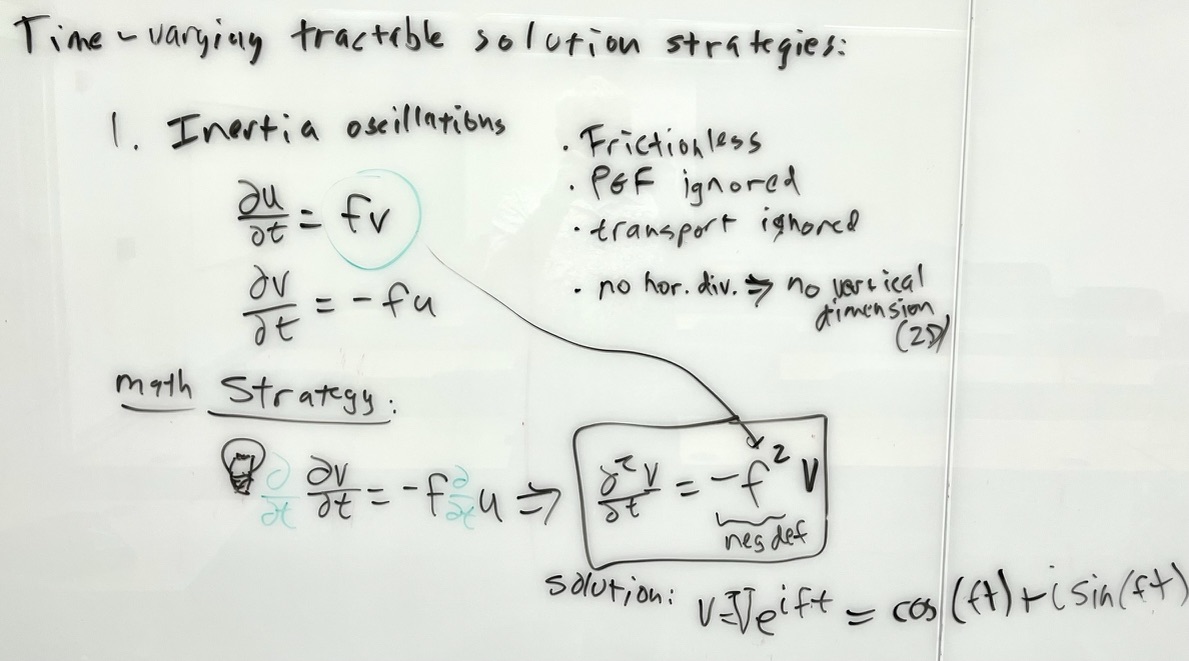 Time-varying tractable solution strategies:
1. Inertia oscillations
∂u/∂t = fv
∂v/∂t = -fu
· Frictionless
· PGF ignored
· transport ignored
· no hor. div. ⇒ no vertical
dimension
(2D)
Math Strategy:
∂/∂t ∂v/∂t = -f ∂/∂t u ⇒ ∂²v/∂t = -f² v
neg def
solution: v=Ve^{ift} = cos(ft)+i sin(ft)